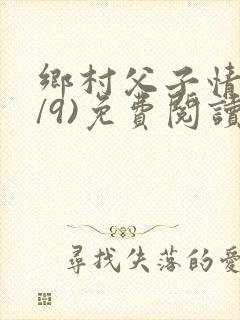 鄉村父子情
/9)免費閱讀
尋找失落的愛